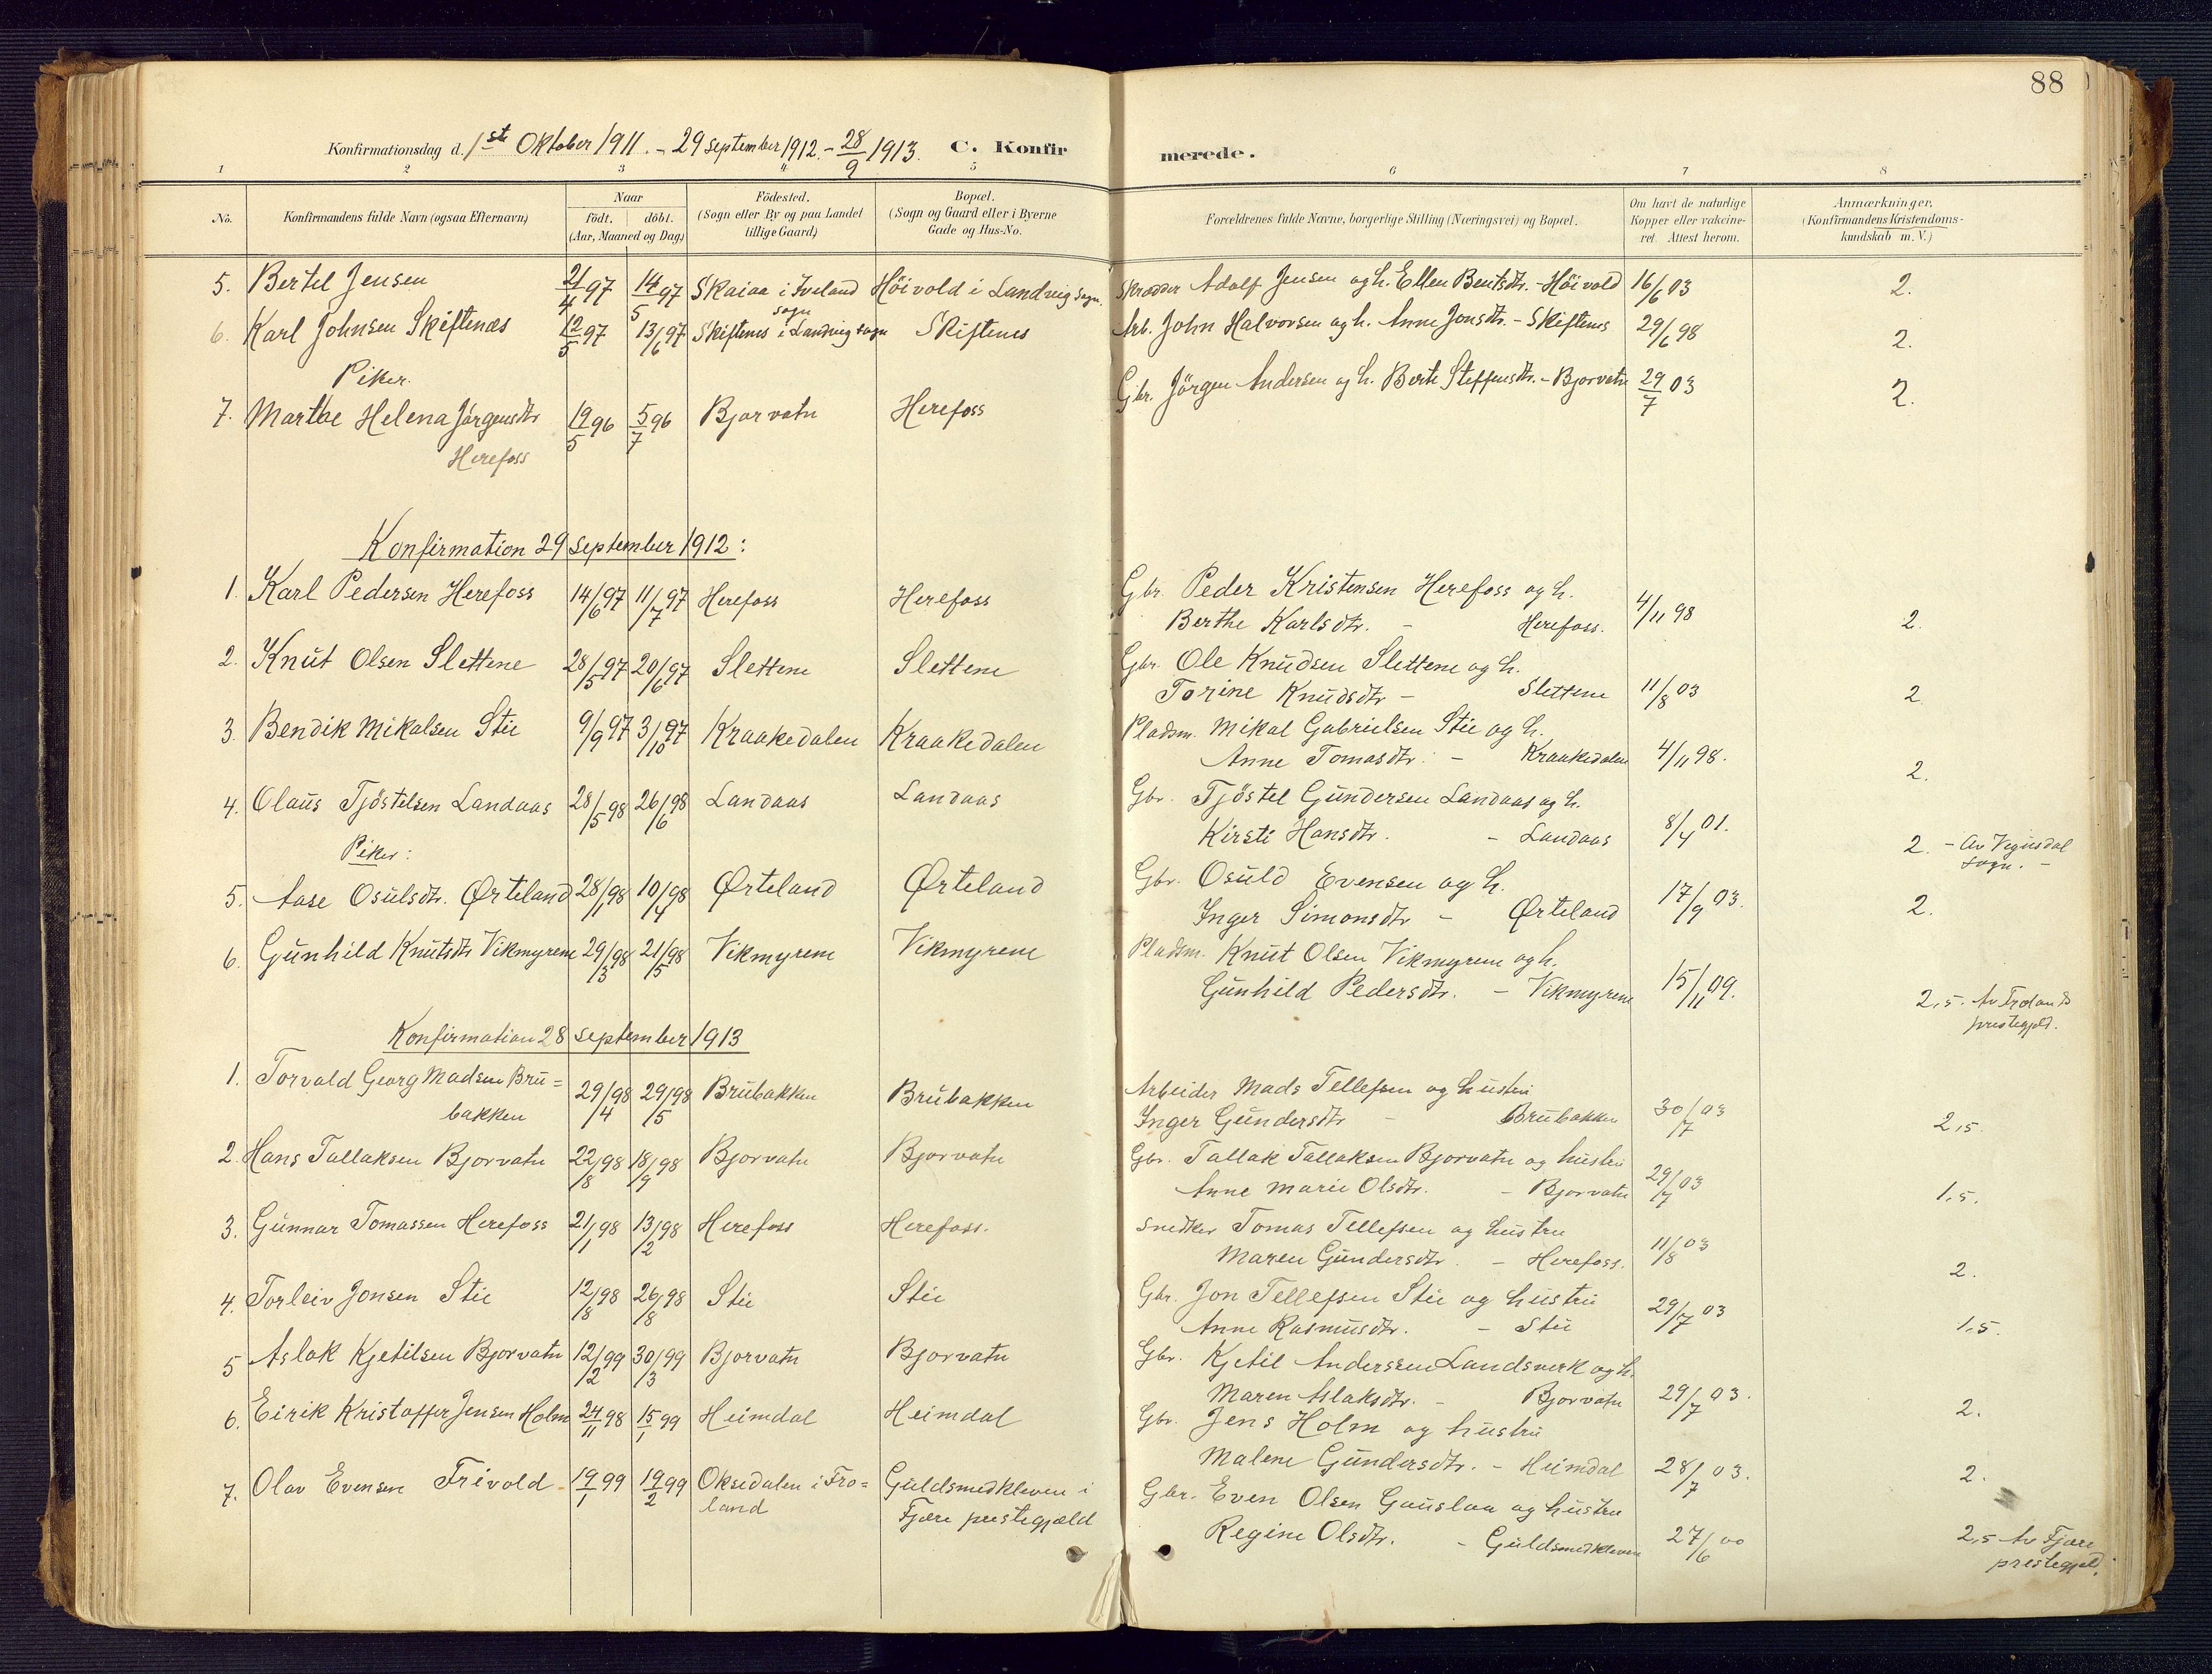 88
Konfirmationsdag d. 1ste Oktober 1911. - 29 september 1912. - 28/9 1913. C. Konfirmerede.
1 2 3 4 5 6 7 8
No. Konfirmandens fulde Navn (ogsaa Efternavn) Naar født. døbt. (Aar, Maaned og Dag) Födested. (Sogn eller By og paa Landet tillige Gaard) Bopæl. (Sogn og Gaard eller i Byerne Gade og Hus-No. Forældrenes fulde Navne, borgerlige Stilling (Næringsvei) og Bopæl. Om havt de naturlige Kopper eller vakcineret. Attest herom. Anmærkninger. (Konfirmandens Kristendomskundskab m. V.)
5. Bertel Jensen 21/4 97 14/5 97 Skaiaa i Iveland sogn Höivold i Landvig sogn. Skrædder Adolf Jensen og h. Ellen Bentsdtr. - Höivold 16/6 03 2.
6. Karl Johnsen Skiftenæs 12/5 97 13/6 97 Skiftenes i Landvig sogn Skiftenes Arb. John Halvorsen og h. Anne Jonsdtr. - Skiftenes 29/6 98 2.
Piker.
7. Marthe Helena Jörgensdtr 19/5 96 5/7 96 Bjorvatn Herefoss Gbr. Jörgen Andersen og h. Berte Steffensdtr. - Bjorvatn 29/7 03 2.
Herefoss
Konfirmation 29 september 1912:
1. Karl Pedersen Herefoss 14/6 97 11/7 97 Herefoss Herefoss Gbr. Peder Kristensen Herefoss og h.
Berthe Karlsdtr. - Herefoss. 4/11 98 2.
2. Knut Olsen Slettene 28/5 97 20/6 97 Slettene Slettene Gbr. Ole Knudsen Slettene og h.
Torine Knudsdtr - Slettene 11/8 03 2
3. Bendik Mikalsen Stie 9/9 97 3/10 97 Kraakedalen Kraakedalen Pladsm. Mikal Gabrielsen Stie og h.
Anne Tomasdtr. - Kraakedalen 4/11 98. 2.
4. Olaus Tjöstelsen Landaas 28/5 98 26/6 98 Landaas Landaas Gbr. Tjöstel Gundersen Landaas og h.
Kirsti Hansdtr. - Landaas 8/4 01. 2. - Av Vegusdal
sogn. -
Piker:
5. Aase Osulsdtr. Ørteland 28/1 98 10/4 98 Ørteland Ørteland Gbr. Osuld Evensen og h.
Inger Simonsdtr - Ørteland 17/9 03. 2.
6. Gunhild Knutsdtr Vikmyrene 29/3 98 21/5 98 Vikmyrene Vikmyrene Pladsm. Knut Olsen Vikmyrene og h.
Gunhild Pedersdtr. - Vikmyrene 15/11 09. 2,5. Av Froland
prestegjeld.
Konfirmation 28 september 1913
1. Torvald Georg Madsen Bru=
bakken 29/4 98 29/5 98 Brubakken Brubakken Arbeider Mads Tellefsen og hustru
Inger Gundersdtr - Brubakken 30/7 03 2,5.
2. Hans Tallaksen Bjorvatn 22/8 98 18/9 98 Bjorvatn Bjorvatn Gbr. Tallak Tallaksen Bjorvatn og hustru
Anne Marie Olsdtr. - Bjorvatn 29/7 03 1,5.
3. Gunnar Tomassen Herefoss 21/1 98 13/2 98 Herefoss Herefoss. Snedker Tomas Tellefsen og hustru
Maren Gundersdtr. - Herefoss. 11/8 03 2.
4. Torleiv Jonsen Stie 12/8 98 26/8 98 Stie Stie Gbr. Jon Tellefsen Stie og hustru
Anne Rasmusdtr. - Stie 29/7 03 1,5.
5 Aslak Kjetilsen Bjorvatn 12/2 99 30/3 99 Bjorvatn Bjorvatn Gbr. Kjetil Anderssen Landsverk og h.
Maren Aslaksdtr. - Bjorvatn 29/7 03. 2.
6. Eirik Kristoffer Jensen Holm 24/11 98 15/1 99 Heimdal Heimdal Gbr. Jens Holm og hustru
Malene Gundersdtr. - Heimdal 28/7 03. 2.
7. Olav Evensen Trivold 19/1 99 19/2 99 Oksedalen i Fro=
land Guldsmedkleven i
Fjære prestegjæld Gbr. Even Olsen Gauslaa og hustru
Regine Olsdtr. - Guldsmedkleven 27/6 00 2,5 Av Fjære
prestegjeld.